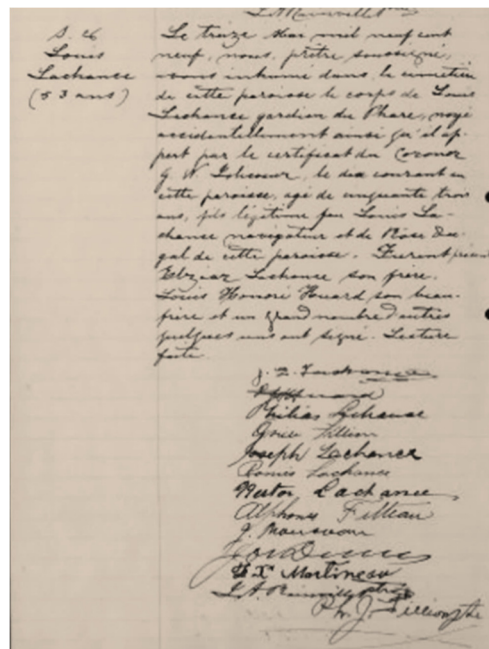 S. 26
Louis
Lachance
(53 ans)
Le treize Mai mil neuf cent
neuf, nous, prêtre soussigné,
avons inhumé dans le cimetière
de cette paroisse le corps de Louis
Lachance gardien du Phare, noyé
accidentellement ainsi qu'il ap-
pert par le certificat du Coronor
G. W. le dix courant en
cette paroisse, agé de cinquante trois
ans, fils légitime feu Louis La-
chance navigateur et de Rose
de cette paroisse. Furent présent
Lachance son frère.
Louis Honoré Huard son beau-
frère et un grand nombre d'autres
quelques uns ont signé. Lecture
faite.
Philias Lachance
Joseph Lachance
Lachance
Nestor Lachance
Alphonse Filteau
J.
X. Martineau
Ph. J. Fillion ptre